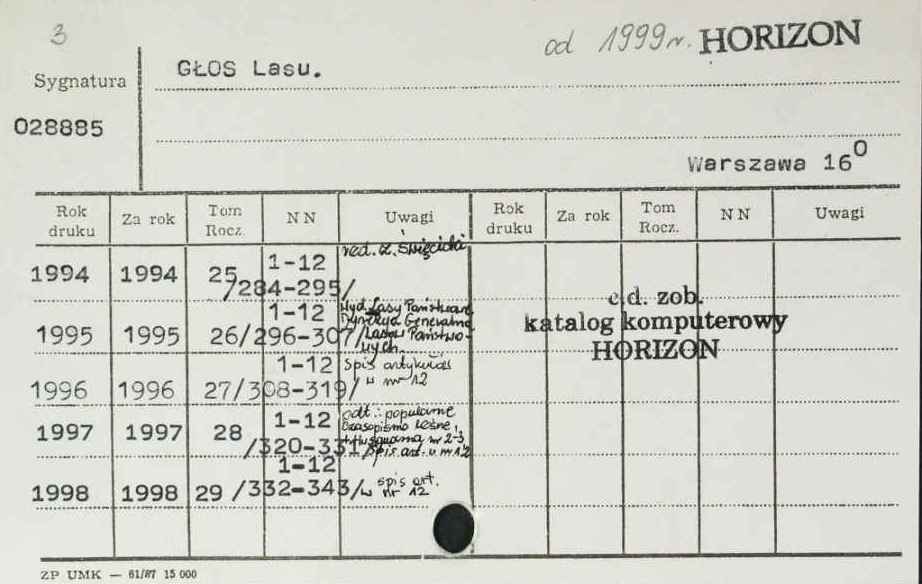 3
od 1999r. HORIZON
GŁOS Lasu.
Sygnatura
028885
Warszawa 16⁰
Rok druku Za rok Tom Rocz. NN Uwagi Rok druku Za rok Tom Rocz. NN Uwagi
1994 1994 25 1-12 /284-295/ red. cz. Święcicki
1995 1995 26 1-12 /296-307/ Wyd. Lasy Państwowe
Dyrekcja Generalna
Lasów Państwo-
wych.
1996 1996 27 1-12 /308-319/ spis artykułów
w nr 12
1997 1997 28 1-12 /320-331/ odt.: popularne
czasopismo leśne,
nr 2-3
spis art. w nr 12
1998 1998 29 1-12 /332-343/ spis art.
w nr 12
c.d. zob.
katalog komputerowy
HORIZON
ZP UMK — 61/87 15 000